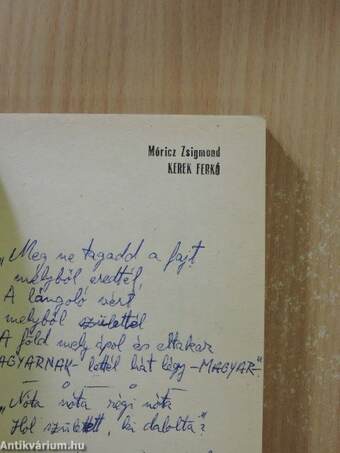 Móricz Zsigmond
KEREK FERKÓ
„Meg ne tagadd a fajt
melyből eredtél,
A lángoló vért
melyből születtél
A föld mely ápol és eltakar
AGYARNAK lettél hát légy - MAGYAR".
„Nóta nóta régi nóta
Hol született, ki dalolta?
Antikvárium.hu